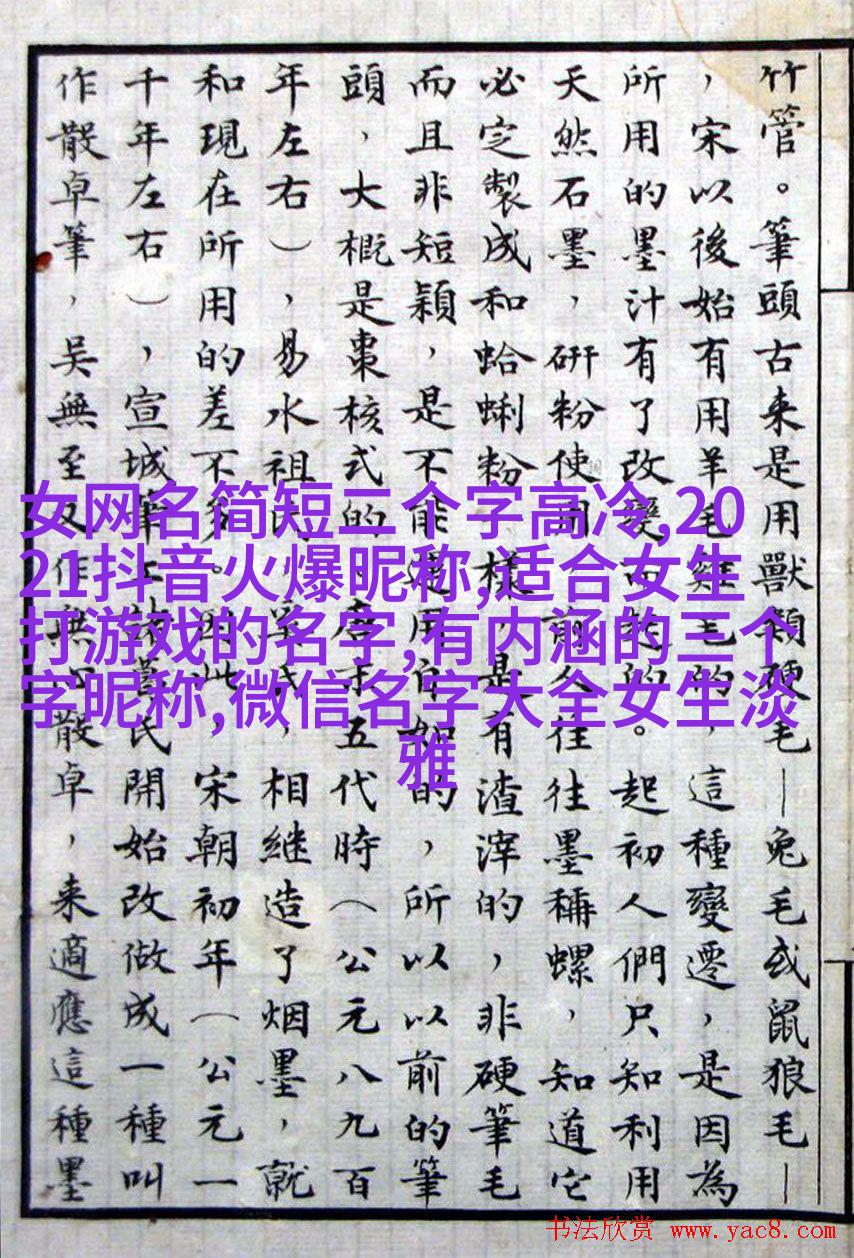 竹管。筆頭古来是用獸類硬毛—兔毛或鼠狼毛—
，宋以後始有用羊毛雞毛的，這種變遷，是因為
所用的墨汁有了改變而起的。起初人們只知利用
天然石墨，研粉使用，前人往往墨稱螺，知道它
必定製成和蛤蜊粉一樣，是有渣滓的，非硬筆毛
而且非短穎，是不能使用自如的，所以以前的筆
頭，大概是棗核式的。唐末五代時（公元八九百
年左右），易水祖氏，相继造了烟墨，就
和現在所用的差不多。因此，宋朝初年（公元一
千年左右），宣城筆工諸葛氏開始改做成一種叫
作散卓筆，吴無至又作無心散卓，来適應這種墨
女网名简短二个字高冷,20
21抖音火爆昵称,适合女生
打游戏的名字,有内涵的三个
字昵称,微信名字大全女生淡
雅
书法欣赏 www.yac8.com